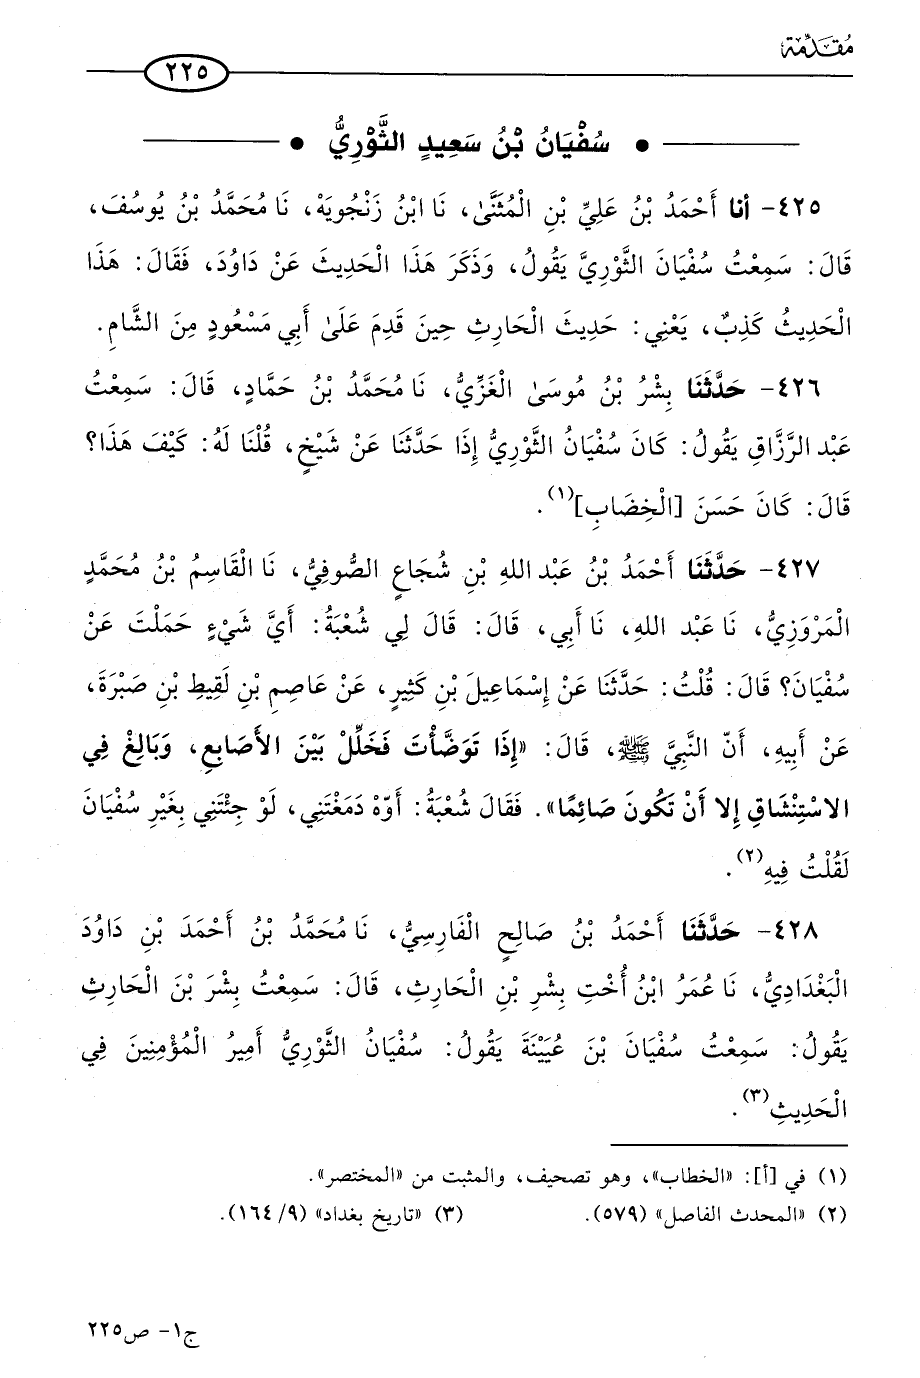 مُقَدِّمَة
٢٢٥
• سُفْيَانُ بْنُ سَعِيدٍ الثَّوْرِيُّ •
٤٢٥- أنا أَحْمَدُ بْنُ عَلِيِّ بْنِ الْمُثَنَّىٰ، نَا ابْنُ زَنْجُويَهْ، نَا مُحَمَّدُ بْنُ يُوسُفَ،
قَالَ: سَمِعْتُ سُفْيَانَ الثَّوْرِيَّ يَقُولُ، وَذَكَرَ هَذَا الْحَدِيثَ عَنْ دَاوُدَ، فَقَالَ: هَذَا
الْحَدِيثُ كَذِبٌ، يَعْنِي: حَدِيثَ الْحَارِثِ حِينَ قَدِمَ عَلَىٰ أَبِي مَسْعُودٍ مِنَ الشَّامِ.
٤٢٦- حَدَّثَنَا بِشْرُ بْنُ مُوسَىٰ الْغَزِّيُّ، نَا مُحَمَّدُ بْنُ حَمَّادٍ، قَالَ: سَمِعْتُ
عَبْد الرَّزَّاقِ يَقُولُ: كَانَ سُفْيَانُ الثَّوْرِيُّ إِذَا حَدَّثَنَا عَنْ شَيْخٍ، قُلْنَا لَهُ: كَيْفَ هَذَا؟
قَالَ: كَانَ حَسَنَ [الْخِضَابِ](١).
٤٢٧- حَدَّثَنَا أَحْمَدُ بْنُ عَبْد اللهِ بْنِ شُجَاعٍ الصُّوفِيُّ، نَا الْقَاسِمُ بْنُ مُحَمَّدٍ
الْمَرْوَزِيُّ، نَا عَبْد اللهِ، نَا أَبِي، قَالَ: قَالَ لِي شُعْبَةُ: أَيَّ شَيْءٍ حَمَلْتَ عَنْ
سُفْيَانَ؟ قَالَ: قُلْتُ: حَدَّثَنَا عَنْ إِسْمَاعِيلَ بْنِ كَثِيرٍ، عَنْ عَاصِمِ بْنِ لَقِيطِ بْنِ صَبْرَةَ،
عَنْ أَبِيهِ، أَنّ النَّبِيَّ ﷺ، قَالَ: «إِذَا تَوَضَّأْتَ فَخَلِّلْ بَيْنَ الأَصَابِعِ، وَبَالِغْ فِي
الاسْتِنْشَاقِ إِلا أَنْ تَكُونَ صَائِمًا». فَقَالَ شُعْبَةُ: أَوّهْ دَمَغْتَنِي، لَوْ جِئْتَنِي بِغَيْرِ سُفْيَانَ
لَقُلْتُ فِيهِ(٢).
٤٢٨- حَدَّثَنَا أَحْمَدُ بْنُ صَالِحٍ الْفَارِسِيُّ، نَا مُحَمَّدُ بْنُ أَحْمَدَ بْنِ دَاوُدَ
الْبَغْدَادِيُّ، نَا عُمَرُ ابْنُ أُخْتِ بِشْرِ بْنِ الْحَارِثِ، قَالَ: سَمِعْتُ بِشْرَ بْنَ الْحَارِثِ
يَقُولُ: سَمِعْتُ سُفْيَانَ بْنَ عُيَيْنَةَ يَقُولُ: سُفْيَانُ الثَّوْرِيُّ أَمِيرُ الْمُؤْمِنِينَ فِي
الْحَدِيثِ(٣).
(١) في [أ]: «الخطاب»، وهو تصحيف، والمثبت من «المختصر».
(٢) «المحدث الفاصل» (٥٧٩). (٣) «تاريخ بغداد» (٩/ ١٦٤).
ج١- ص٢٢٥